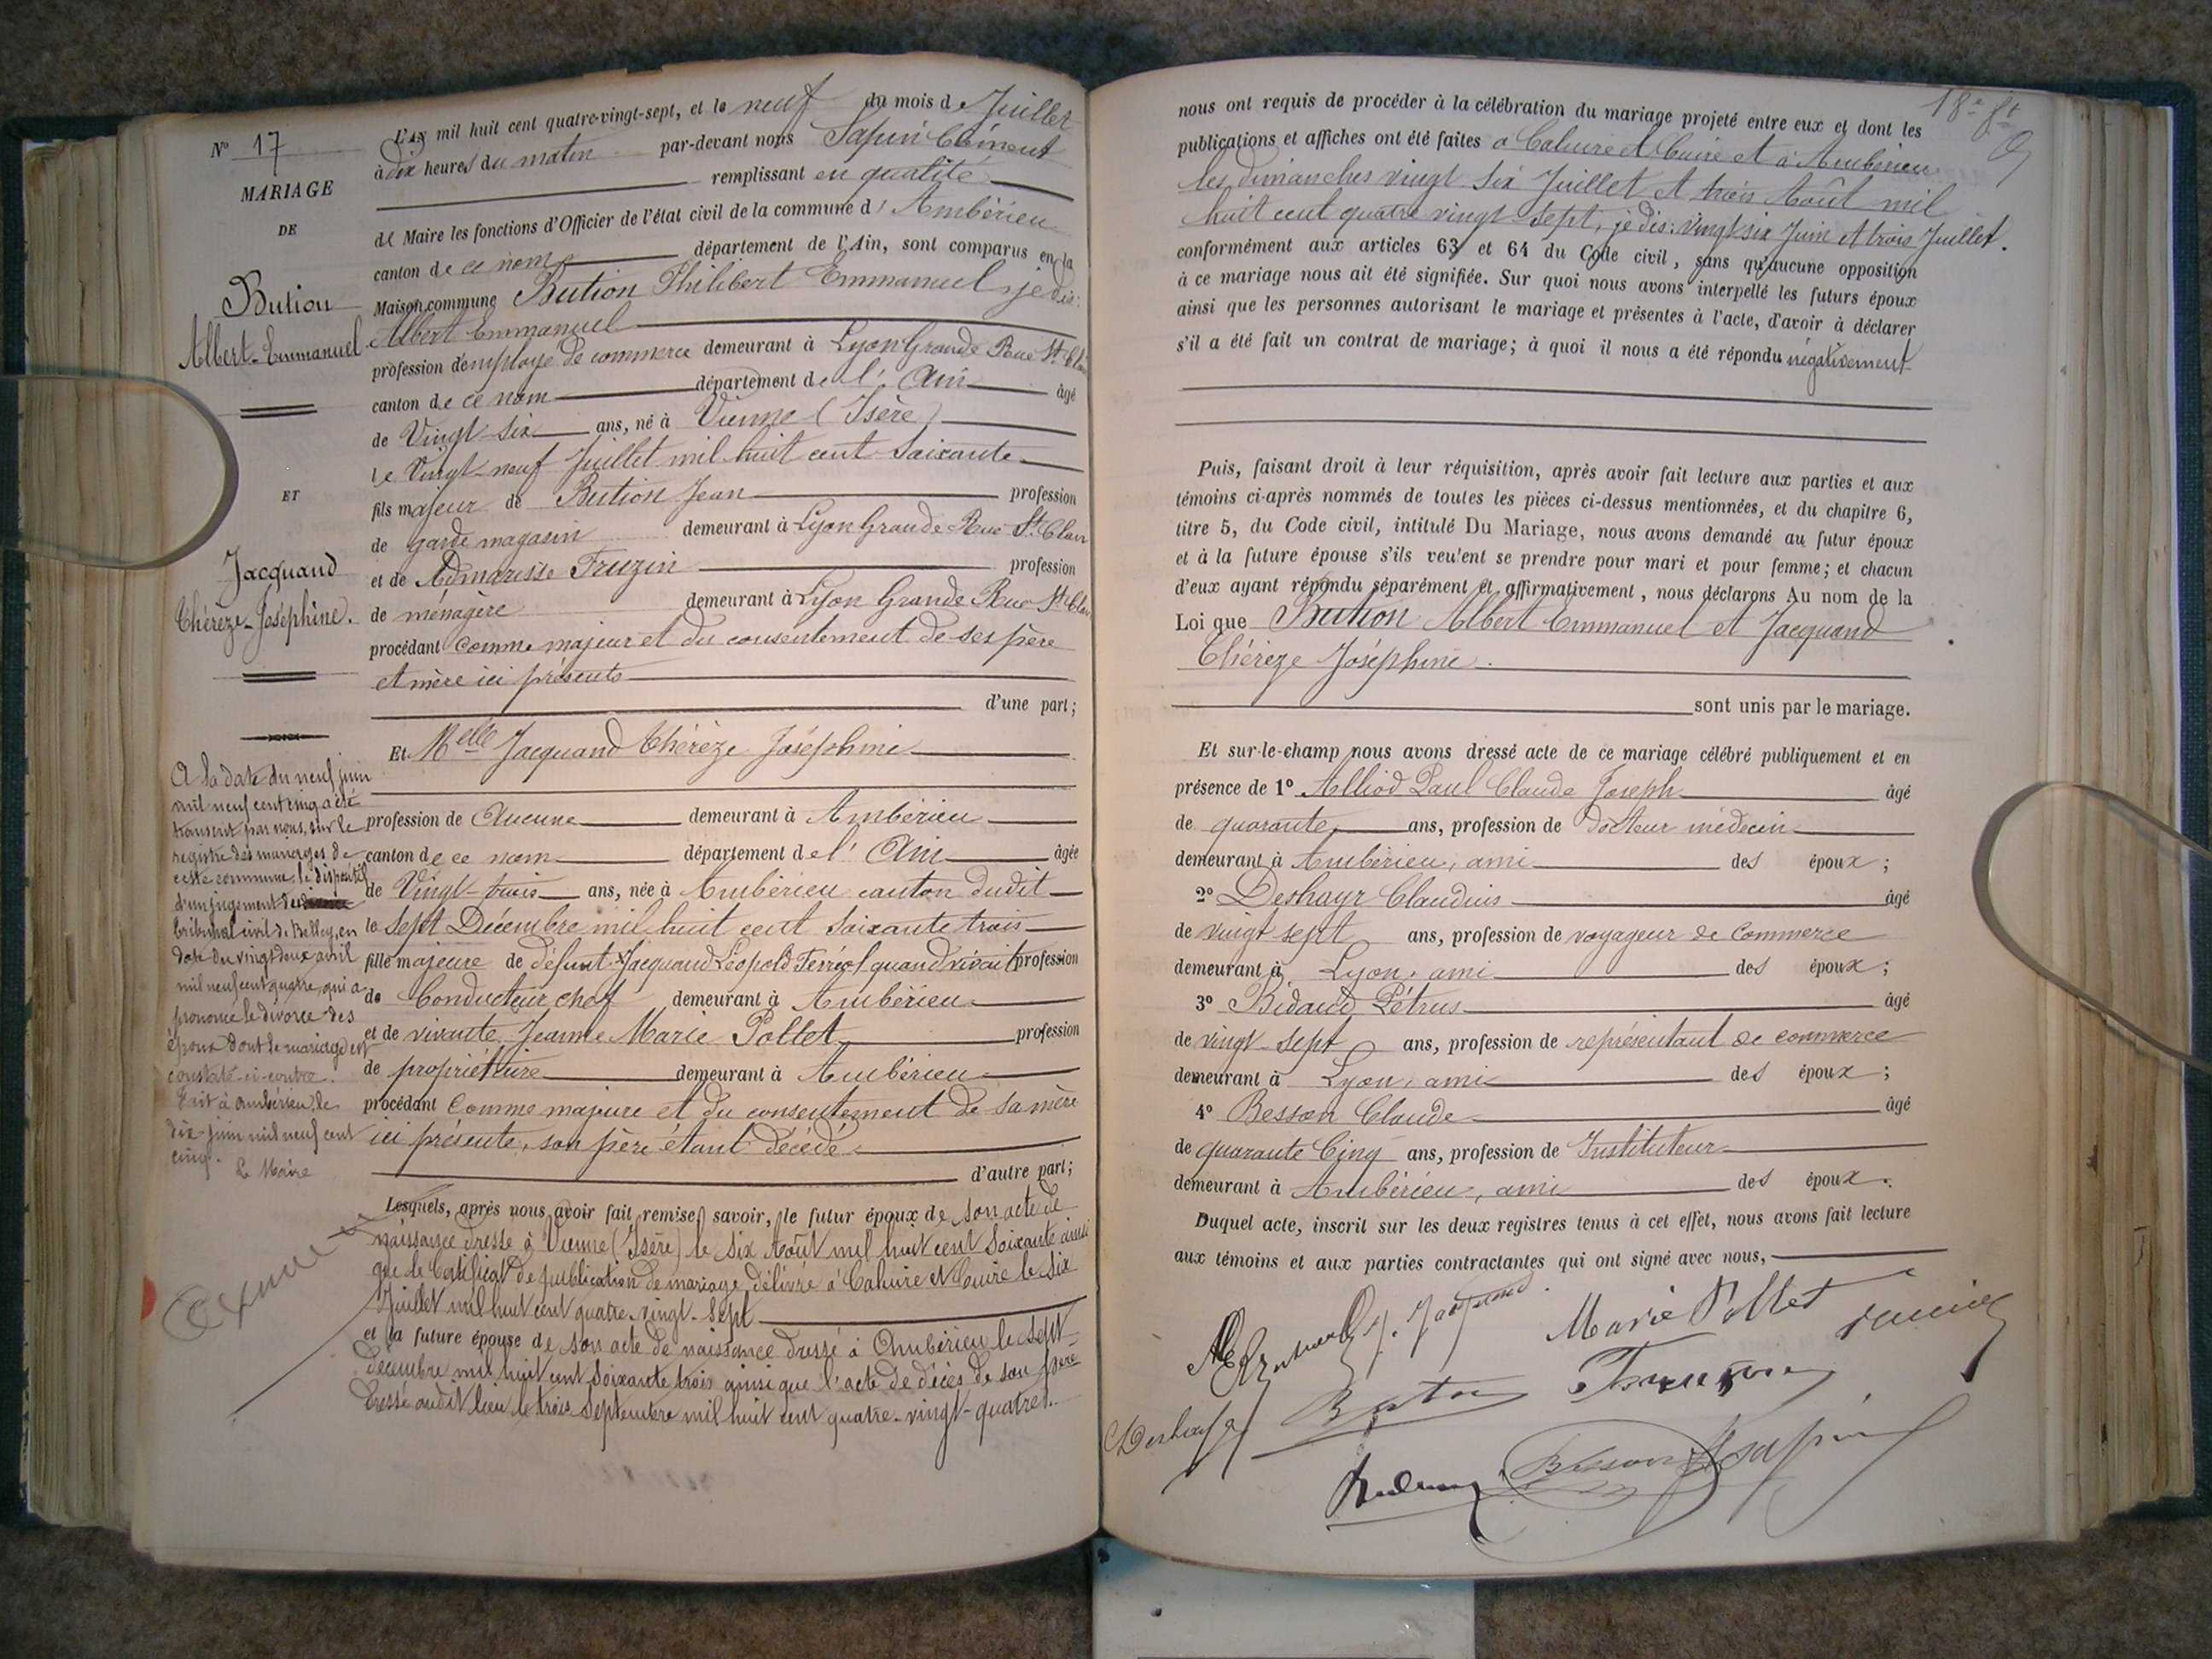 N° 17
MARIAGE
DE
Bution
Albert-Emmanuel
ET
Jacquand
Thérèze-Joséphine.
A la date du neuf juin
mil neuf cent cinq a été
transcrit par nous, sur le
registre des mariages de
cette commune, le dispositif
d'un jugement du
tribunal civil de Belley, en
date du vingt deux avril
mil neuf cent quatre, qui a
prononcé le divorce des
époux dont le mariage est
constaté ci-contre.
Fait à Ambérieu, le
dix juin mil neuf cent
cinq.
Le Maire
L'AN mil huit cent quatre-vingt-sept, et le neuf du mois de Juillet
à dix heures du matin par-devant nous Sapin Clément
remplissant en qualité
de Maire les fonctions d'Officier de l'état civil de la commune d'Ambérieu
canton de ce nom département de l'Ain, sont comparus en la
Maison commune Bution Philibert Emmanuel, je dis:
Albert Emmanuel
profession d'employé de commerce demeurant à Lyon Grande Rue St Clair
canton de ce nom département de l'Ain âgé
de Vingt-six ans, né à Vienne (Isère)
le Vingt-neuf Juillet mil huit cent Soixante
fils majeur de Bution Jean profession
de garde magasin demeurant à Lyon Grande Rue St Clair
et de Admarisse Truzin profession
de ménagère demeurant à Lyon Grande Rue St Clair
procédant comme majeur et du consentement de ses père
et mère ici présents
d'une part;
Et Melle Jacquand Thérèze Joséphine
profession de Aucune demeurant à Ambérieu
canton de ce nom département de l'Ain âgée
de Vingt-trois ans, née à Ambérieu canton dudit
le Sept Décembre mil huit cent Soixante trois
fille majeure de défunt Jacquand Léopold Ferréol quand vivait profession
de Conducteur chef demeurant à Ambérieu
et de vivante Jeanne Marie Pollet profession
de propriétaire demeurant à Ambérieu
procédant comme majeure et du consentement de sa mère
ici présente, son père étant décédé
d'autre part;
Lesquels, après nous avoir fait remise, savoir, le futur époux de son acte de
naissance dressé à Vienne (Isère) le six Août mil huit cent Soixante ainsi
que le Certificat de publication de mariage délivré à Caluire et Cuire le six
Juillet mil huit cent quatre-vingt-sept
et la future épouse de son acte de naissance dressé à Ambérieu le sept
décembre mil huit cent soixante trois ainsi que l'acte de décès de son père
dressé audit lieu le trois septembre mil huit cent quatre-vingt-quatre.
18e ft
nous ont requis de procéder à la célébration du mariage projeté entre eux et dont les
publications et affiches ont été faites à Caluire et Cuire et à Ambérieu
les dimanches vingt six Juillet et trois Août mil
huit cent quatre vingt-sept, je dis: vingt six Juin et trois Juillet.
conformément aux articles 63 et 64 du Code civil, sans qu'aucune opposition
à ce mariage nous ait été signifiée. Sur quoi nous avons interpellé les futurs époux
ainsi que les personnes autorisant le mariage et présentes à l'acte, d'avoir à déclarer
s'il a été fait un contrat de mariage; à quoi il nous a été répondu négativement
Puis, faisant droit à leur réquisition, après avoir fait lecture aux parties et aux
témoins ci-après nommés de toutes les pièces ci-dessus mentionnées, et du chapitre 6,
titre 5, du Code civil, intitulé Du Mariage, nous avons demandé au futur époux
et à la future épouse s'ils veu'ent se prendre pour mari et pour femme; et chacun
d'eux ayant répondu séparément et affirmativement, nous déclarons Au nom de la
Loi que Bution Albert Emmanuel et Jacquand
Thérèze Joséphine.
sont unis par le mariage.
Et sur-le-champ nous avons dressé acte de ce mariage célébré publiquement et en
présence de 1° Alliod Paul Claude Joseph âgé
de quarante ans, profession de docteur médecin
demeurant à Ambérieu, ami des époux;
2° Deshayr Claudius âgé
de vingt sept ans, profession de voyageur de commerce
demeurant à Lyon, ami des époux;
3° Bidaud Pétrus âgé
de vingt-sept ans, profession de représentant de commerce
demeurant à Lyon, ami des époux;
4° Besson Claude âgé
de quarante Cinq ans, profession de Instituteur
demeurant à Ambérieu, ami des époux.
Duquel acte, inscrit sur les deux registres tenus à cet effet, nous avons fait lecture
aux témoins et aux parties contractantes qui ont signé avec nous,
J. Jacquand
Marie Pollet
Bution
Besson
Sapin